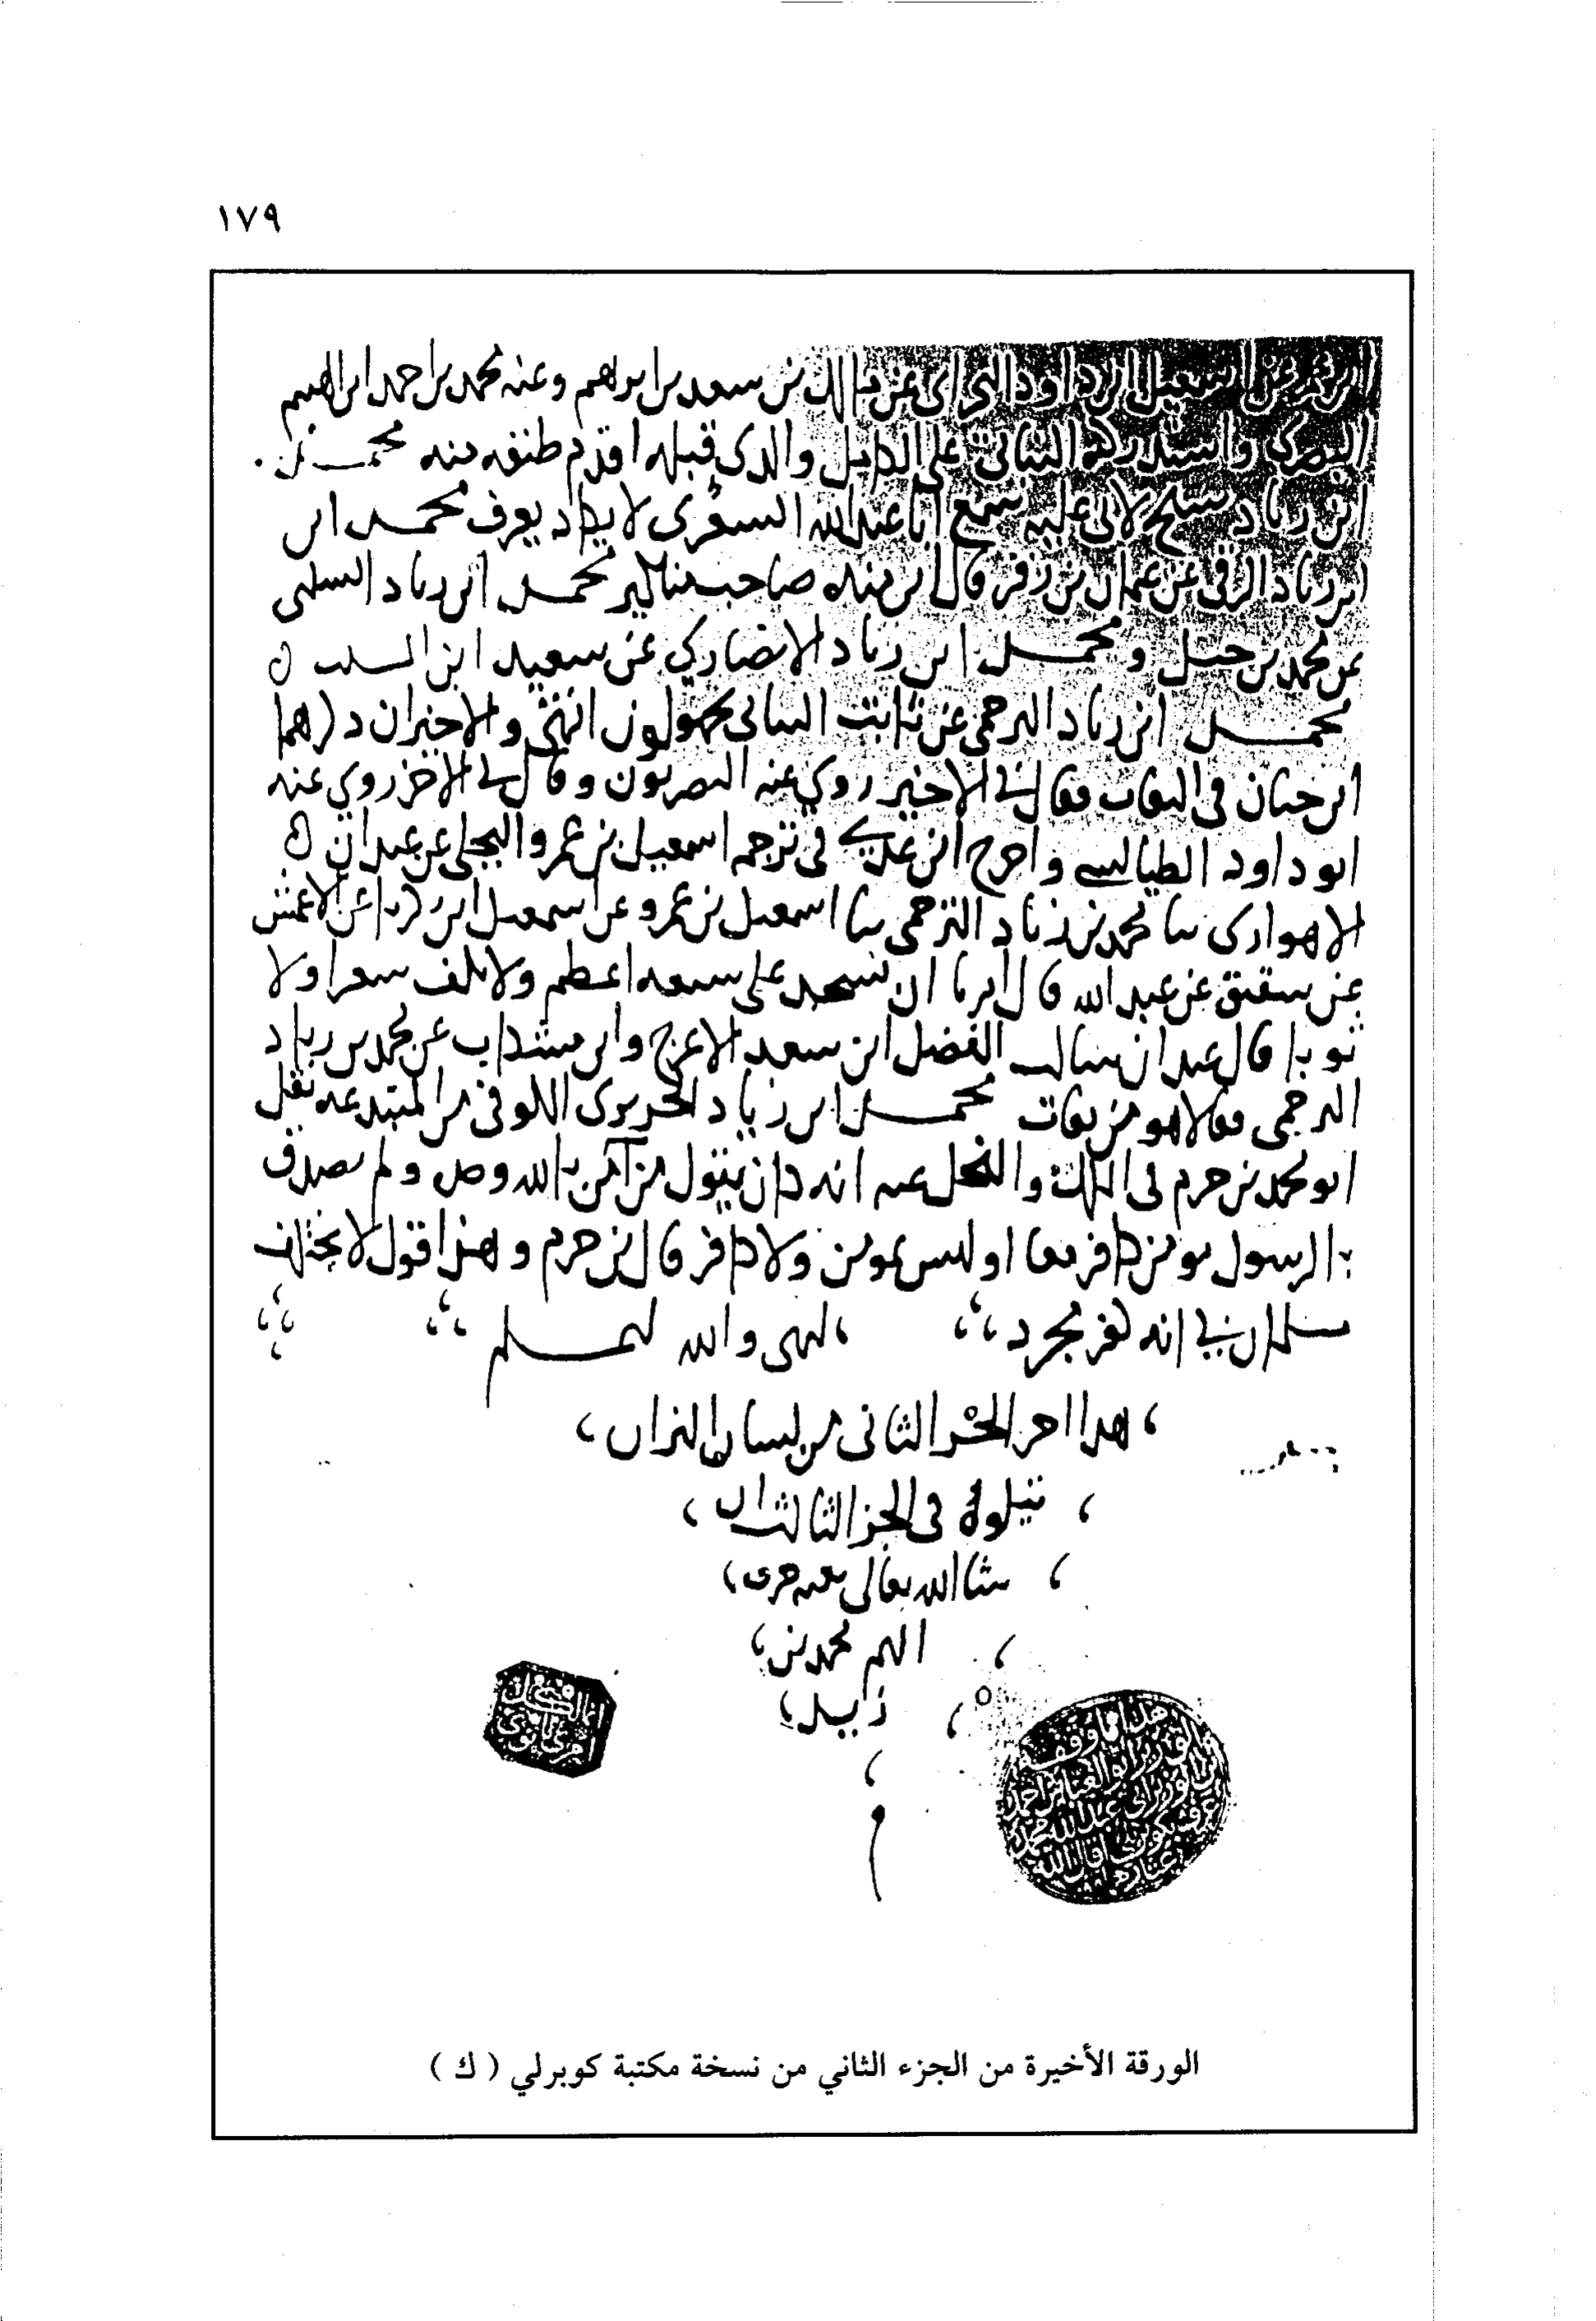 ١٧٩
عن اسمعيل ابن داود عن مالك بن سعد بن ابراهيم وعنه محمد بن احمد ابن ابراهيم
البصري واستدركه النباتي على الكامل والذي قبله اقدم طبقه منه محمد بن
ابن زياد شيخ لابي عليه سمع ابا عبد الله لا يكاد يعرف محمد ابن
ابن زياد الرقي عن بن زفر قال ابن منده صاحب مناكير محمد ابن زياد السلمي
عن محمد بن ومحمد ابن زياد الانصاري عن سعيد ابن المسيب
محمد ابن زياد البرجمي عن ثابت البناني مجهولون انتهى والاخيران ذكرهما
ابن حبان في الثقات فقال في الاخير روي عنه البصريون وقال في الاخر روي عنه
ابو داود الطيالسي واخرج ابن عدي في ترجمه اسمعيل بن عمرو البجلي عن عبدان
الاهوازي ثنا محمد بن زياد البرجمي ثنا اسمعيل بن عمرو عن اسمعيل ابن زكريا عن الاعمش
عن شقيق عن عبد الله قال امرنا ان نسجد على سبعه اعظم ولا نكف شعرا ولا
ثوبا قال عبدان سالت الفضل ابن سهد الاعرج وابن اشكاب عن محمد بن زياد
البرجمي فقالا هو من ثقات محمد ابن زياد الحريري الكوفي من المبتدعه نقل
ابو محمد بن حزم في الملل والنحل عنه انه كان يقول من آمن بالله وكذب ولم يصدق
بالرسول مومن كافر معا او ليس بمومن ولا كافر قال ابن حزم وهذا قول لا يختلف
مسلمان في انه كفر مجرد انتهى والله اعلم
هذا اخر الجزء الثاني من لسان الميزان
يتلوه في الجز الثالث ان
شا الله تعالى
اسم محمد بن
زايد
الورقة الأخيرة من الجزء الثاني من نسخة مكتبة كوبرلي ( ك )